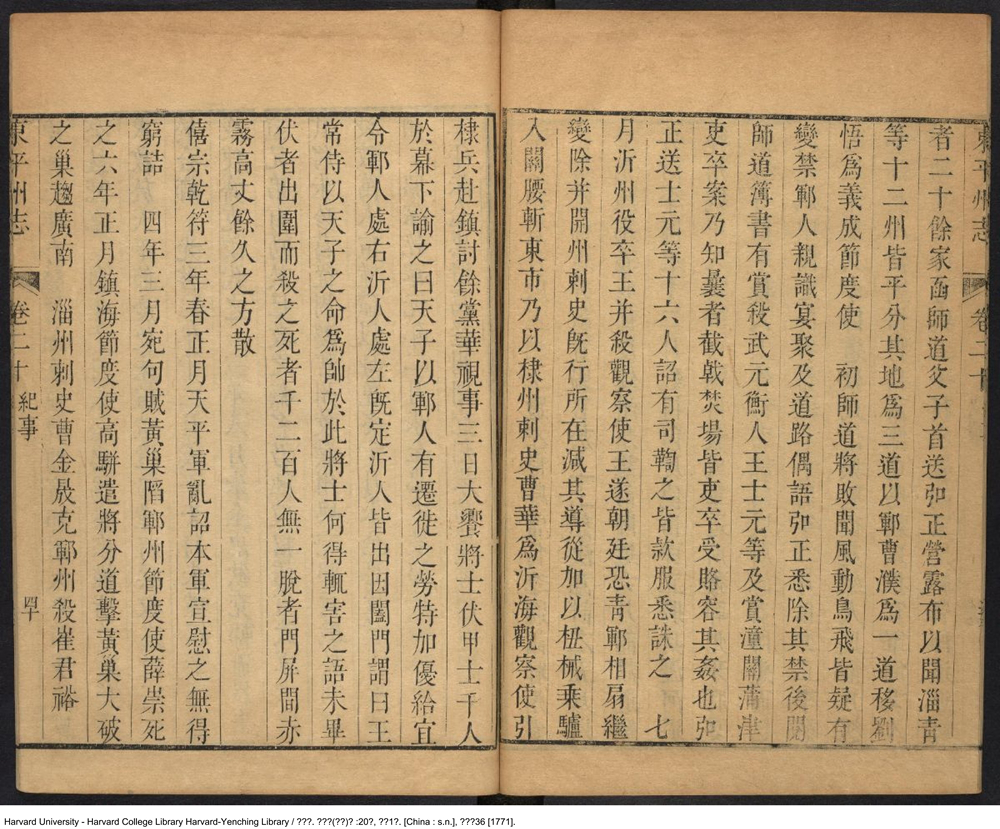 東平州志 卷二十
者二十餘家函師道父子首送弘正營露布以聞淄青
等十二州皆平分其地爲三道以鄆曹濮爲一道移劉
悟爲義成節度使 初師道將敗聞風動鳥飛皆疑有
變禁鄆人親識宴聚及道路偶語弘正悉除其禁後閱
師道簿書有賞殺武元衡人王士元等及賞潼關蒲津
吏卒案乃知曩者截戟焚場皆吏卒受賂容其姦也弘
正送士元等十六人詔有司鞫之皆款服悉誅之 七
月沂州役卒王弁殺觀察使王遂朝廷恐青鄆相扇繼
變除弁開州刺史旣行所在減其導從加以杻械乘驢
入關腰斬東市乃以棣州刺史曹華爲沂海觀察使引
棣兵赴鎮討餘黨華視事三日大饗將士伏甲士千人
於幕下諭之曰天子以鄆人有遷徙之勞特加優給宜
令鄆人處右沂人處左旣定沂人皆出因闔門謂曰王
常侍以天子之命爲帥於此將士何得輒害之語未畢
伏者出圍而殺之死者千二百人無一脫者門屏間赤
霧高丈餘久之方散
僖宗乾符三年春正月天平軍亂詔本軍宣慰之無得
窮詰 四年三月宛句賊黃巢陷鄆州節度使薛崇死
之六年正月鎮海節度使高駢遣將分道擊黃巢大破
之巢趨廣南 淄州刺史曹全晸克鄆州殺崔君裕
東平州志 卷二十 紀事 四十
Harvard University - Harvard College Library Harvard-Yenching Library / ???. ???(??)? :20?, ??1?. [China : s.n.], ???36 [1771].